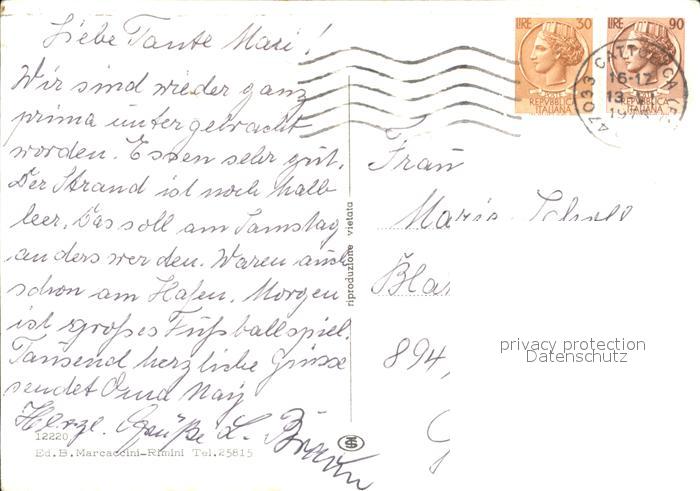 Liebe Tante Mari!
Wir sind wieder ganz
prima untergebracht
worden. Essen sehr gut.
Der Strand ist noch halb
leer. Das soll am Samstag
anders werden. Waren auch
schon am Hafen. Morgen
ist großes Fußballspiel.
Tausend herzliche Grüsse
sendet Oma
Herzl. Grüße L. Braun
12220
Ed. B. Marcaccini-Rimini Tel. 25815
riproduzione vietata
LIRE 30
POSTE
REPVBBLICA
ITALIANA
LIRE 90
REPVBBLICA
ITALIANA
47033 CATTOLICA
16-17
13
19
Frau
Maria
Bla
894
privacy protection
Datenschutz